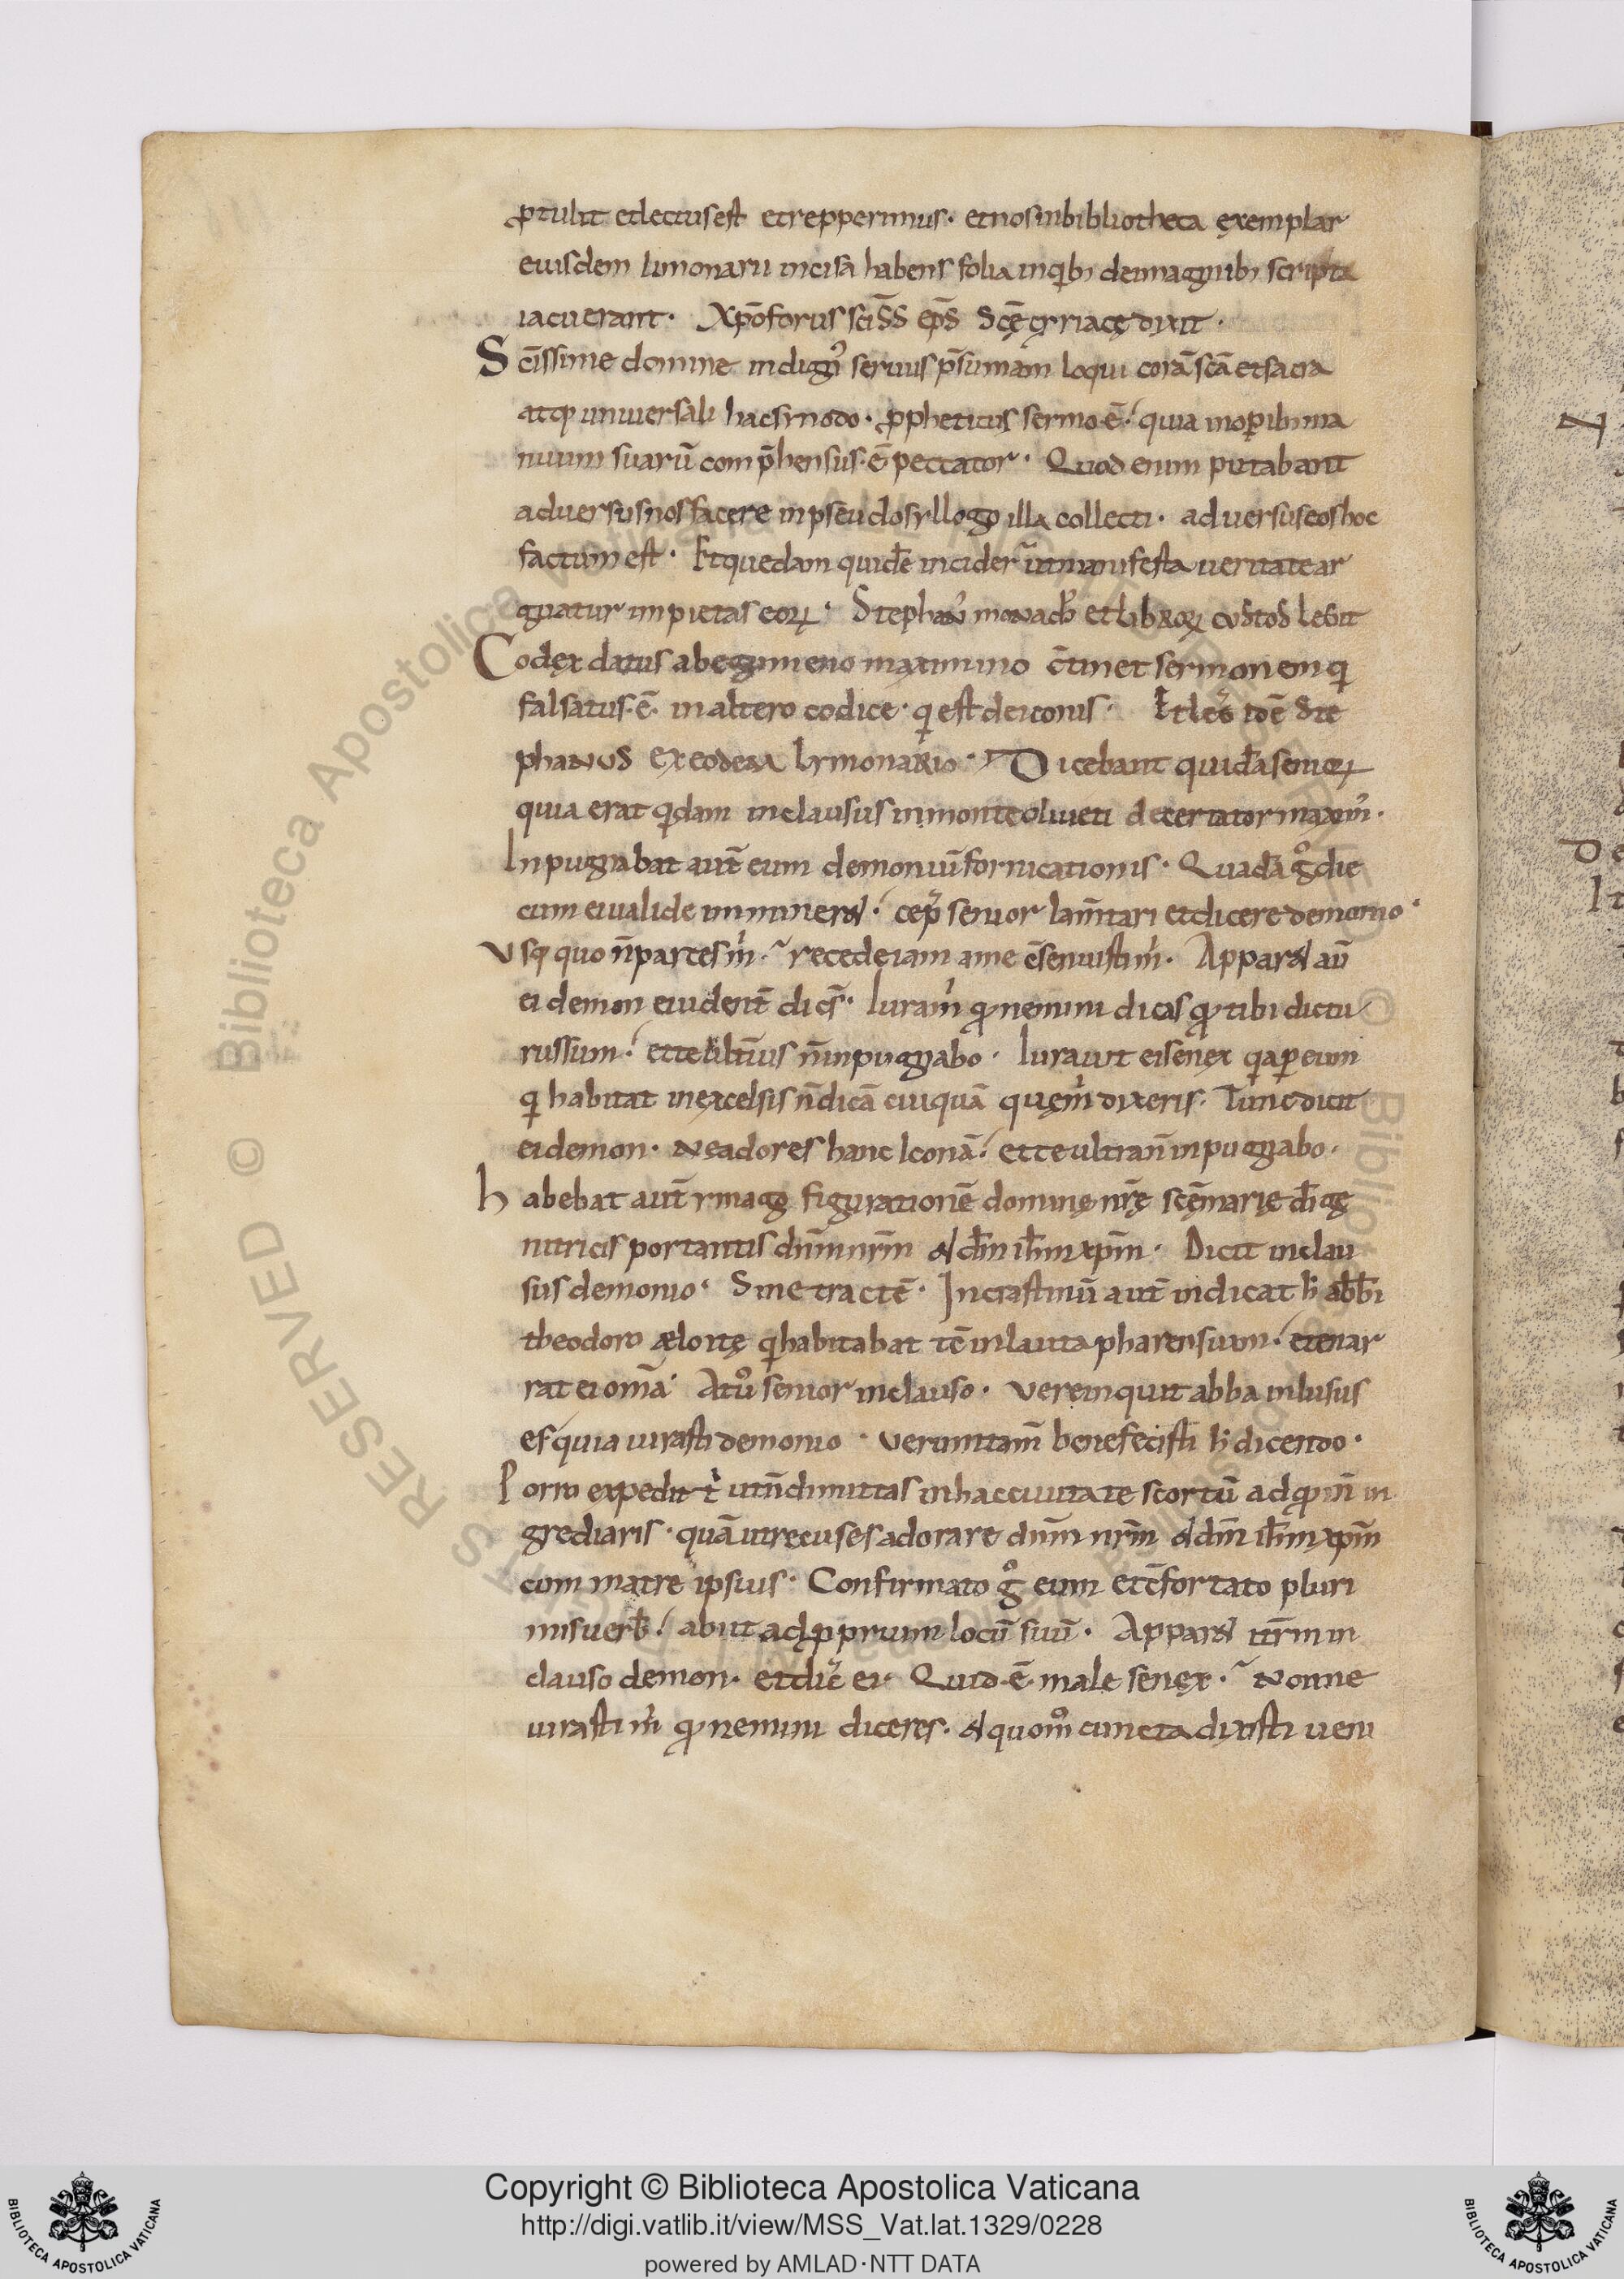 ꝓtulit et lectus est et repperimus· et nos in bibliotheca exemplar
eiusdem limonarii incisa habens folia in qͥbꝫ de imaginibꝫ scripta
iacuerant· Xp̄oforus sc̄iss̄ ep̄s sc̄ę cyriacę dixit·
Sc̄issime domine indign᾿ seruus p̄sumam loqui corā sc̄ā et sacra
atqꝫ uniuersali hac synodo· ꝓpheticus sermo ē· quia in oꝑibꝫ ma
nuum suarū comp̄hensus· ē peccator· Quod enim putabant
aduersus nos facere in pseudosyllogo illa collecti· aduersus eos hoc
factum est· Et quedam quidē incider̄ ut manifesta ueritate ar
guatur impietas eoꝝ· Stephan᾿ monach᾿ et libroꝝ custos legit
Codex datus ab egumeno maximino c̄tinet sermonem qͥ
falsatus· ē· in altero codice· qͥ est de iconis· Et leg̃ idē ste
phanus ex eodem lymonario· Dicebant quidā senioꝝ
quia erat qͥdam inclausus in monte oliueti decertator maxim᾿·
Inpugnabat aut̄ eum demoniū fornicationis· Quadā gͦ die
cum ei ualide immineret· cep̃ senior lam̄tari et dicere demonio·
Vsqꝫ quo n̄ parces m̍· recede iam a me c̄senuisti m̍· Apparet aū
ei demon euident̄ dic̄s· Iura m̍ qͩ nemini dicas qͩ tibi dictu
rus sum· et te ulteri᾿ n̄ inpugnabo· Iurauit ei senex qͥa ꝑ eum
qͥ habitat in excelsis n̄ dicā cuiquā quę m̍ dixeris· Tunc dicit
ei demon· Ne adores hanc Iconā· et te ultra n̄ inpugnabo·
Habebat aut̄ ymago figurationē dominę nr̄ę sc̄ę marię di̅ gę
nitricis portantis dn̄m nr̄m et dm̄ ih̄m xp̄m· Dicit inclau
sus demonio· Sine tractē· In crastinū aut̄ indicat h̍ abb̄i
theodoro ęloitę qͥ habitabat tc̄ in lauita pharensium· et enar
rat ei om̄a· At uͦ senior inclauso· Vere inquit abba inlusus
es quia iurasti demonio· Verumtam̄ benefecisti h̍ dicendo·
Porro expedit t̍ ut n̄ dimittas in hac ciuitate scortū ad qͩ n̄ in
grediaris· quā ut recuses adorare dn̄m nr̄m et dm̄ ih̄m xp̄m
cum matre ipsius· Confirmato gͦ eum et c̄fortato pluri
mis uerb̄· abiit ad ꝓprium locū suū· Apparet iter̄m in
clauso demon· et dic̃ ei· Quid· ē· male senex· Nonne
iurasti m̍ qͩ nemini diceres· et quom̊ cuncta dixisti ueni
© Biblioteca Apostolica Vaticana
Copyright © Biblioteca Apostolica Vaticana
http://digi.vatlib.it/view/MSS_Vat.lat.1329/0228
powered by AMLAD·NTT DATA
BIBLIOTECA APOSTOLICA VATICANA
BIBLIOTECA APOSTOLICA VATICANA